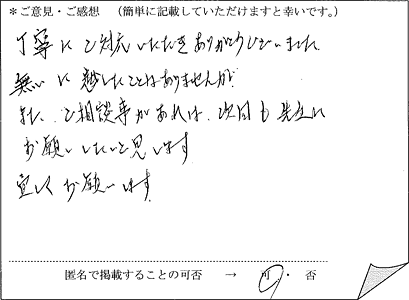 ＊ご意見・ご感想 （簡単に記載していただけますと幸いです。）
丁寧にご対応いただきありがとうございました
無いに越したことはありませんが
また、ご相談事があれば、次回も先生に
お願いしたいと思います
宜しくお願いします
匿名で掲載することの可否 → 可 ・ 否